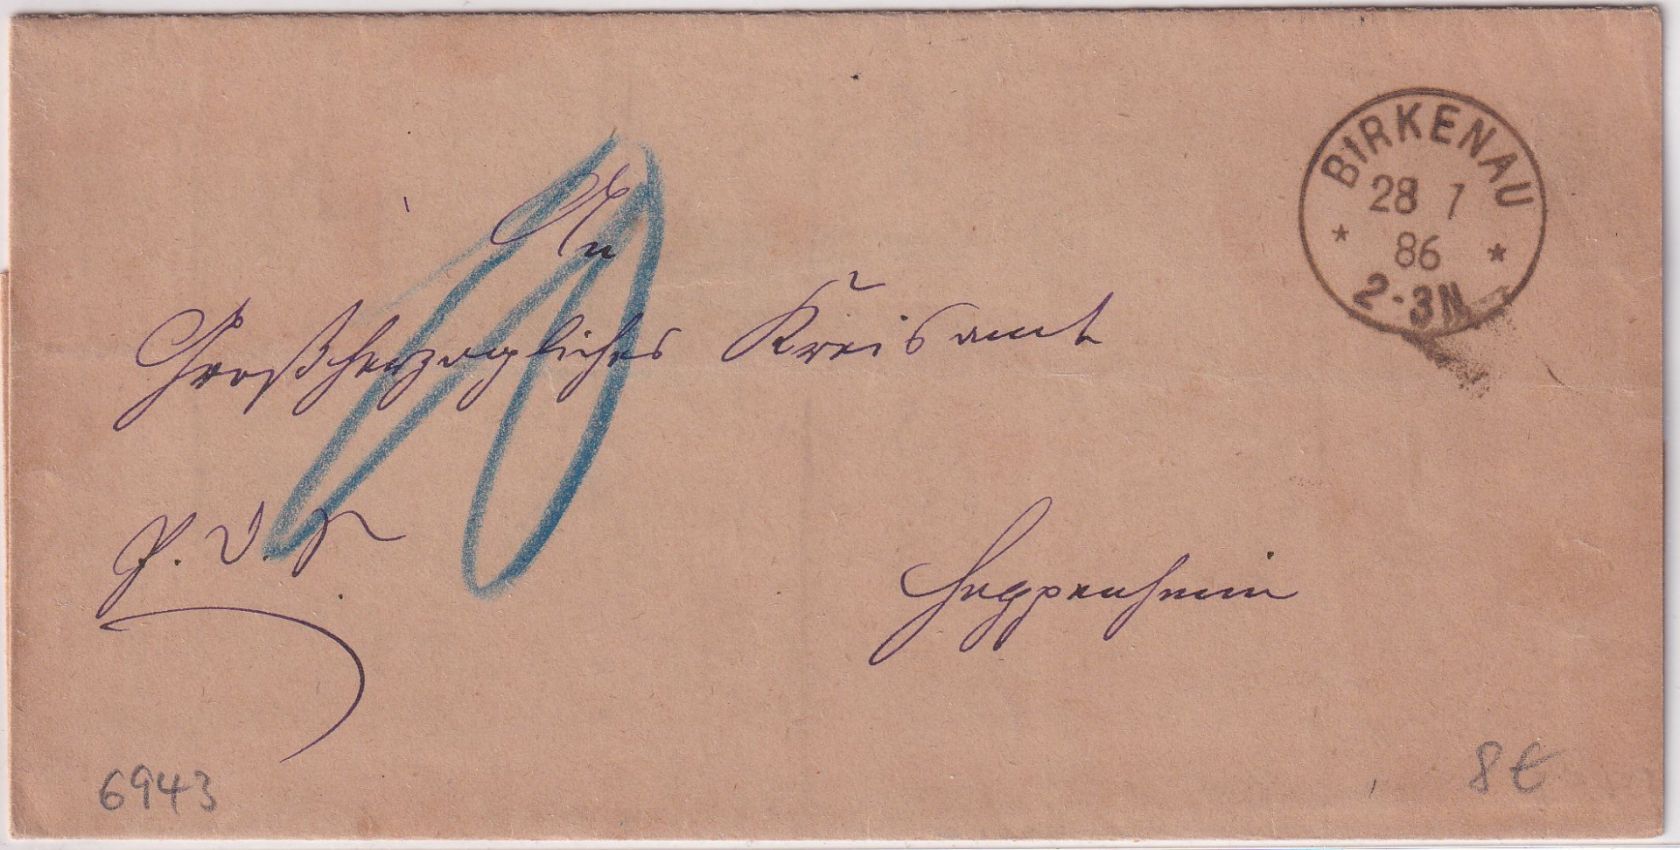 BIRKENAU
28 7
86
2-3N
An
Großherzogliches Kreisamt
Heppenheim
10
6943
8€